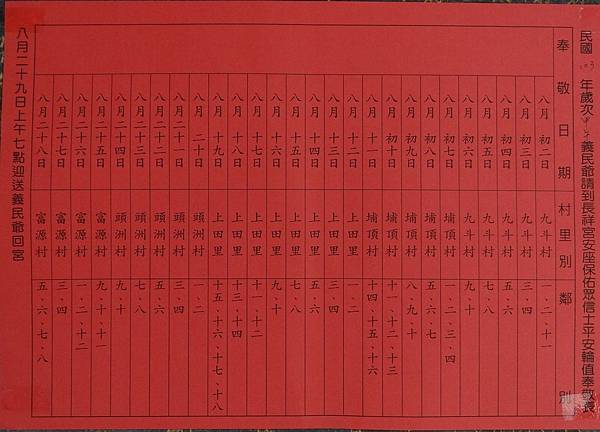 民國 103 年歲次甲午義民爺請到長祥宮安座保佑眾信士平安輪值奉敬表
奉敬日期 村里別 鄰別
八月初二日 九斗村 一、二、十一
八月初三日 九斗村 三、四
八月初四日 九斗村 五、六
八月初五日 九斗村 七、八
八月初六日 九斗村 九、十
八月初七日 埔頂村 一、二、三、四
八月初八日 埔頂村 五、六、七
八月初九日 埔頂村 八、九、十
八月初十日 埔頂村 十一、十二、十三
八月十一日 埔頂村 十四、十五、十六
八月十二日 上田里 一、二
八月十三日 上田里 三、四
八月十四日 上田里 五、六
八月十五日 上田里 七、八
八月十六日 上田里 九、十
八月十七日 上田里 十一、十二
八月十八日 上田里 十三、十四
八月十九日 上田里 十五、十六、十七、十八
八月二十日 頭洲村 一、二
八月二十一日 頭洲村 三、四
八月二十二日 頭洲村 五、六
八月二十三日 頭洲村 七、八
八月二十四日 頭洲村 九、十
八月二十五日 富源村 九、十、十一
八月二十六日 富源村 一、二、十二
八月二十七日 富源村 三、四
八月二十八日 富源村 五、六、七、八
八月二十九日上午七點迎送義民爺回宮